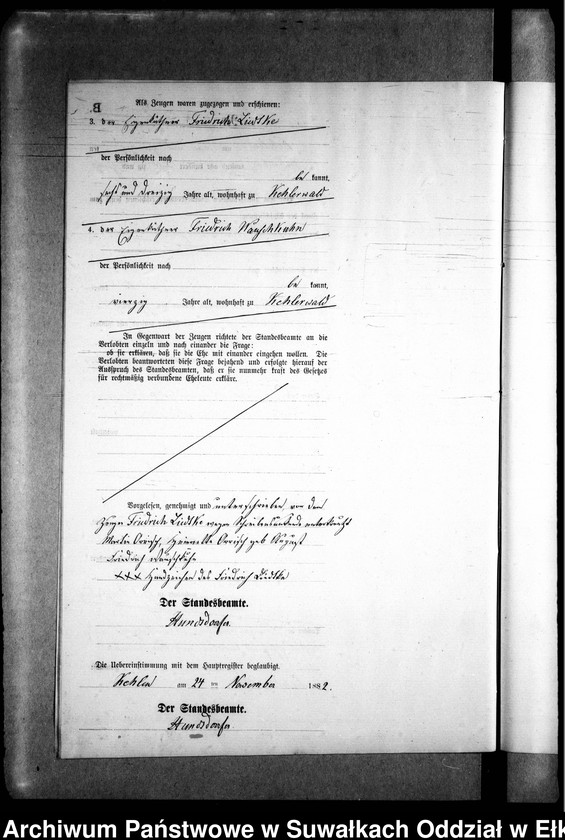 B.
Als Zeugen waren zugezogen und erschienen:
3. der Eigenkäthner Friedrich Lüdtke
der Persönlichkeit nach
be kannt,
sechs und dreizig Jahre alt, wohnhaft zu Kehlerwald
4. der Eigenkäthner Friedrich
der Persönlichkeit nach
be kannt,
vierzig Jahre alt, wohnhaft zu Kehlerwald
In Gegenwart der Zeugen richtete der Standesbeamte an die
Verlobten einzeln und nach einander die Frage:
ob sie erklären, daß sie die Ehe mit einander eingehen wollen. Die
Verlobten beantworteten diese Frage bejahend und erfolgte hierauf der
Ausspruch des Standesbeamten, daß er sie nunmehr kraft des Gesetzes
für rechtmäßig verbundene Eheleute erkläre.
Vorgelesen, genehmigt und unterschrieben, von dem
Zeugen Friedrich Lüdtke wegen Schreibensunkunde unterkreuzt
Martin geb
Friedrich
+++ Handzeichen des Friedrich Lüdtke
Der Standesbeamte.
Die Uebereinstimmung mit dem Hauptregister beglaubigt.
Kehlen am 24 ten November 1882.
Der Standesbeamte.
Archiwum Państwowe w Suwałkach Oddział w Ełk